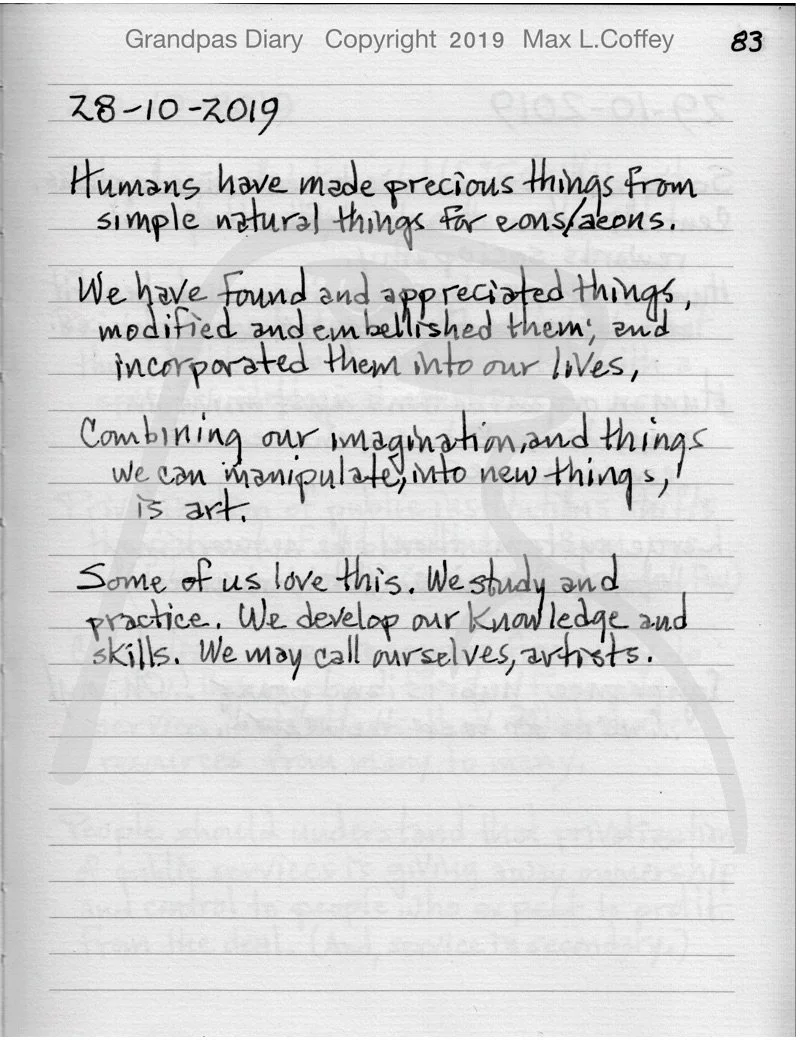 Grandpas Diary Copyright 2019 Max L.Coffey 83
28-10-2019
Humans have made precious things from
simple natural things for eons/aeons.
We have found and appreciated things,
modified and embellished them; and
incorporated them into our lives,
Combining our imagination, and things
we can manipulate, into new things,
is art.
Some of us love this. We study and
practice. We develop our knowledge and
skills. We may call ourselves, artists.